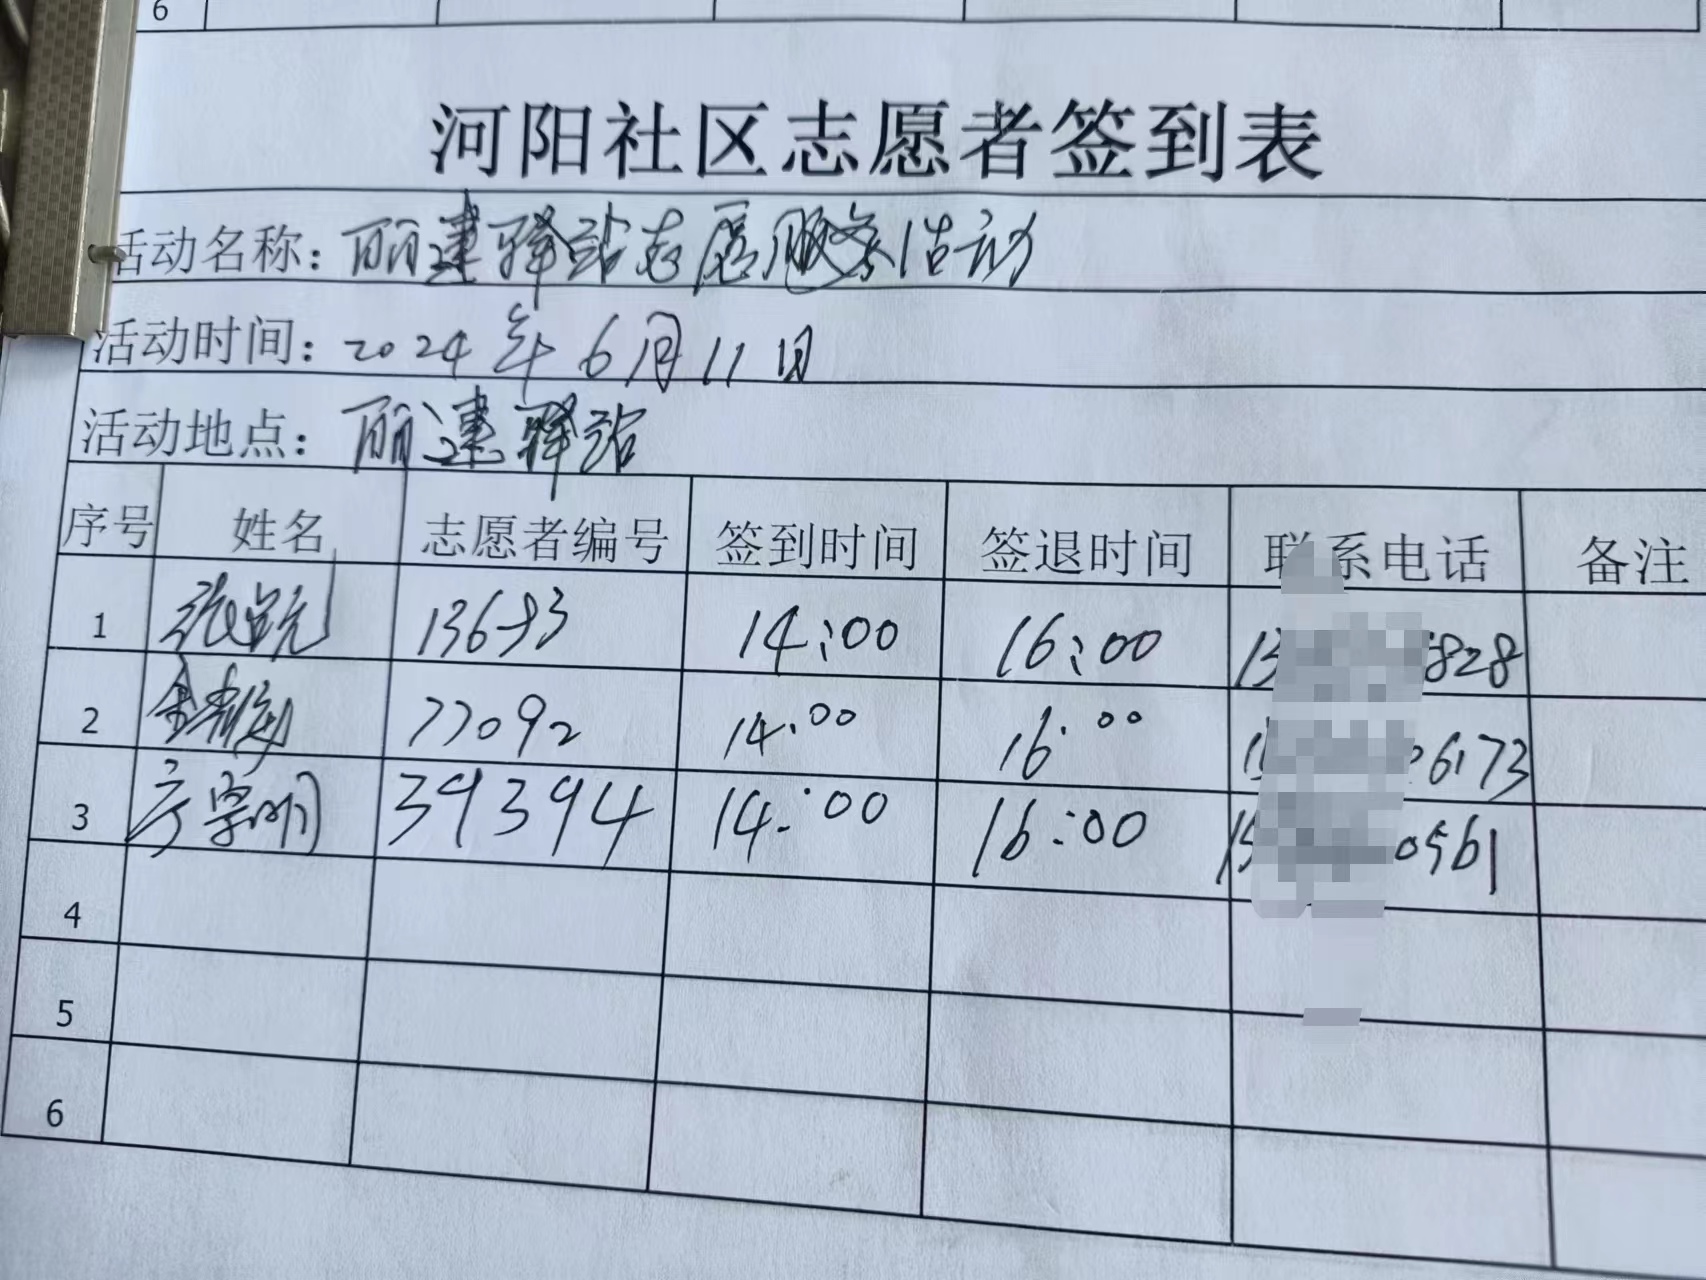 6
河阳社区志愿者签到表
活动名称：丽建驿站志愿服务活动
活动时间：2024年6月11日
活动地点：丽建驿站
序号 姓名 志愿者编号 签到时间 签退时间 联系电话 备注
1 13693 14:00 16:00 13 828
2 77092 14:00 16:00 6173
3 39394 14:00 16:00 15 0561
4
5
6